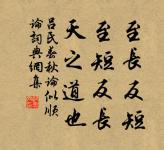 至長反短
至短反長
天之道也
呂氏春秋論似順
論詞典網集